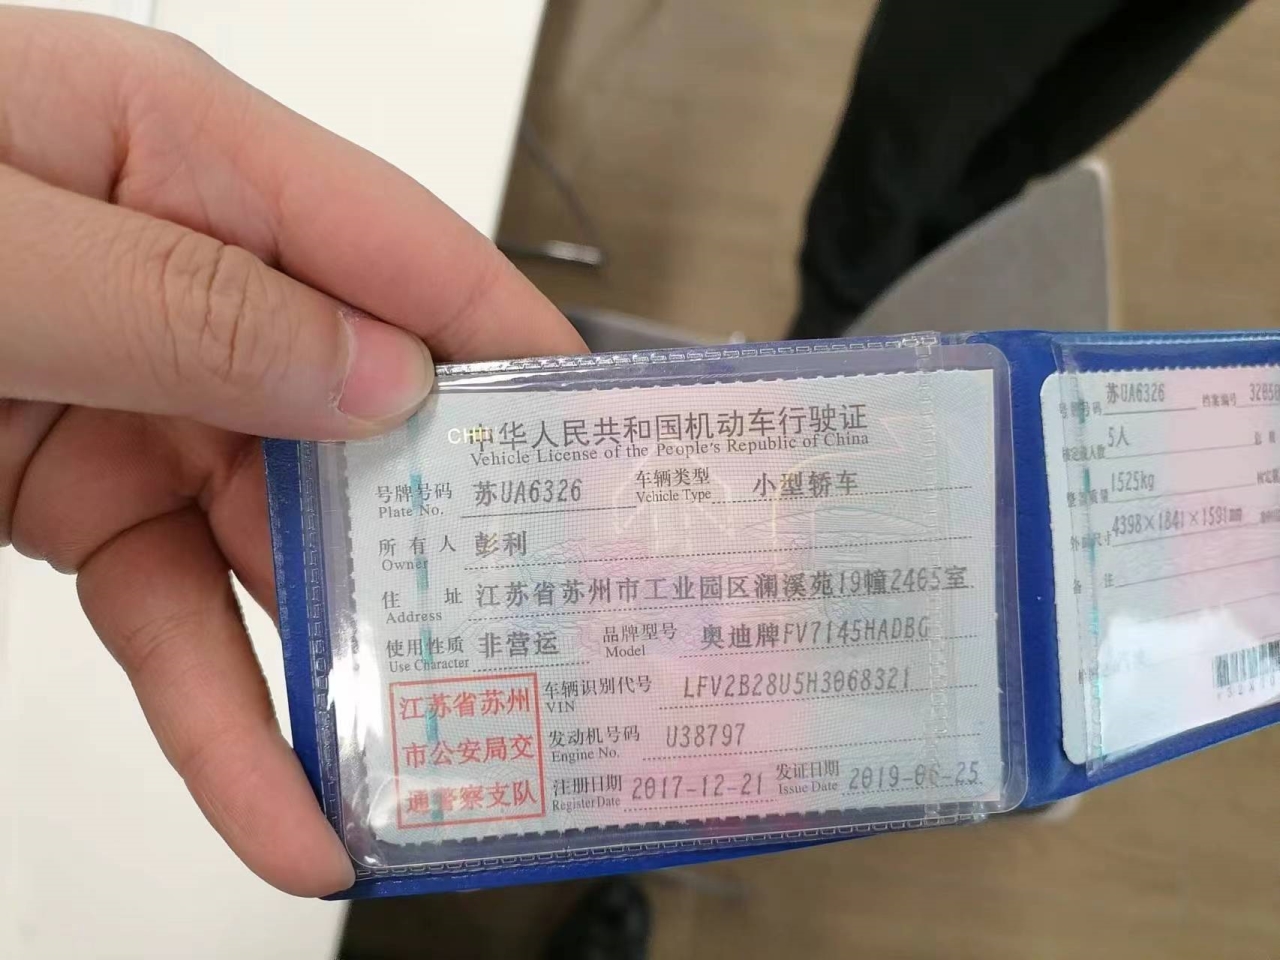 中华人民共和国机动车行驶证
Vehicle License of the People's Republic of China
号牌号码 苏UA6326 车辆类型 小型轿车
Plate No. Vehicle Type
所有人 彭利
Owner
住址 江苏省苏州市工业园区澜溪苑19幢2465室
Address
使用性质 非营运 品牌型号 奥迪牌FV7145HADBG
Use Character Model
车辆识别代号 LFV2B28U5H3068321
VIN
发动机号码 U38797
Engine No.
注册日期 2017-12-21 发证日期 2019-06-25
Register Date Issue Date
江苏省苏州
市公安局交
通警察支队
号牌号码 苏UA6326 档案编号
5人
1525kg
4398×1841×1591mm